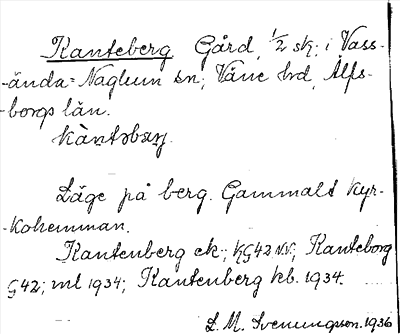 Kanteberg Gård, 1/2 sk; i Vass-
-ända-Naglum sn; Väne hd, Älfs-
-borgs län.
Läge på berg. Gammalt kyr-
-kohemman.
Kantenberg ek.; Kanteborg
G42; ml 1934; Kantenberg kb. 1934.
L. M. Svenungsson. 1936